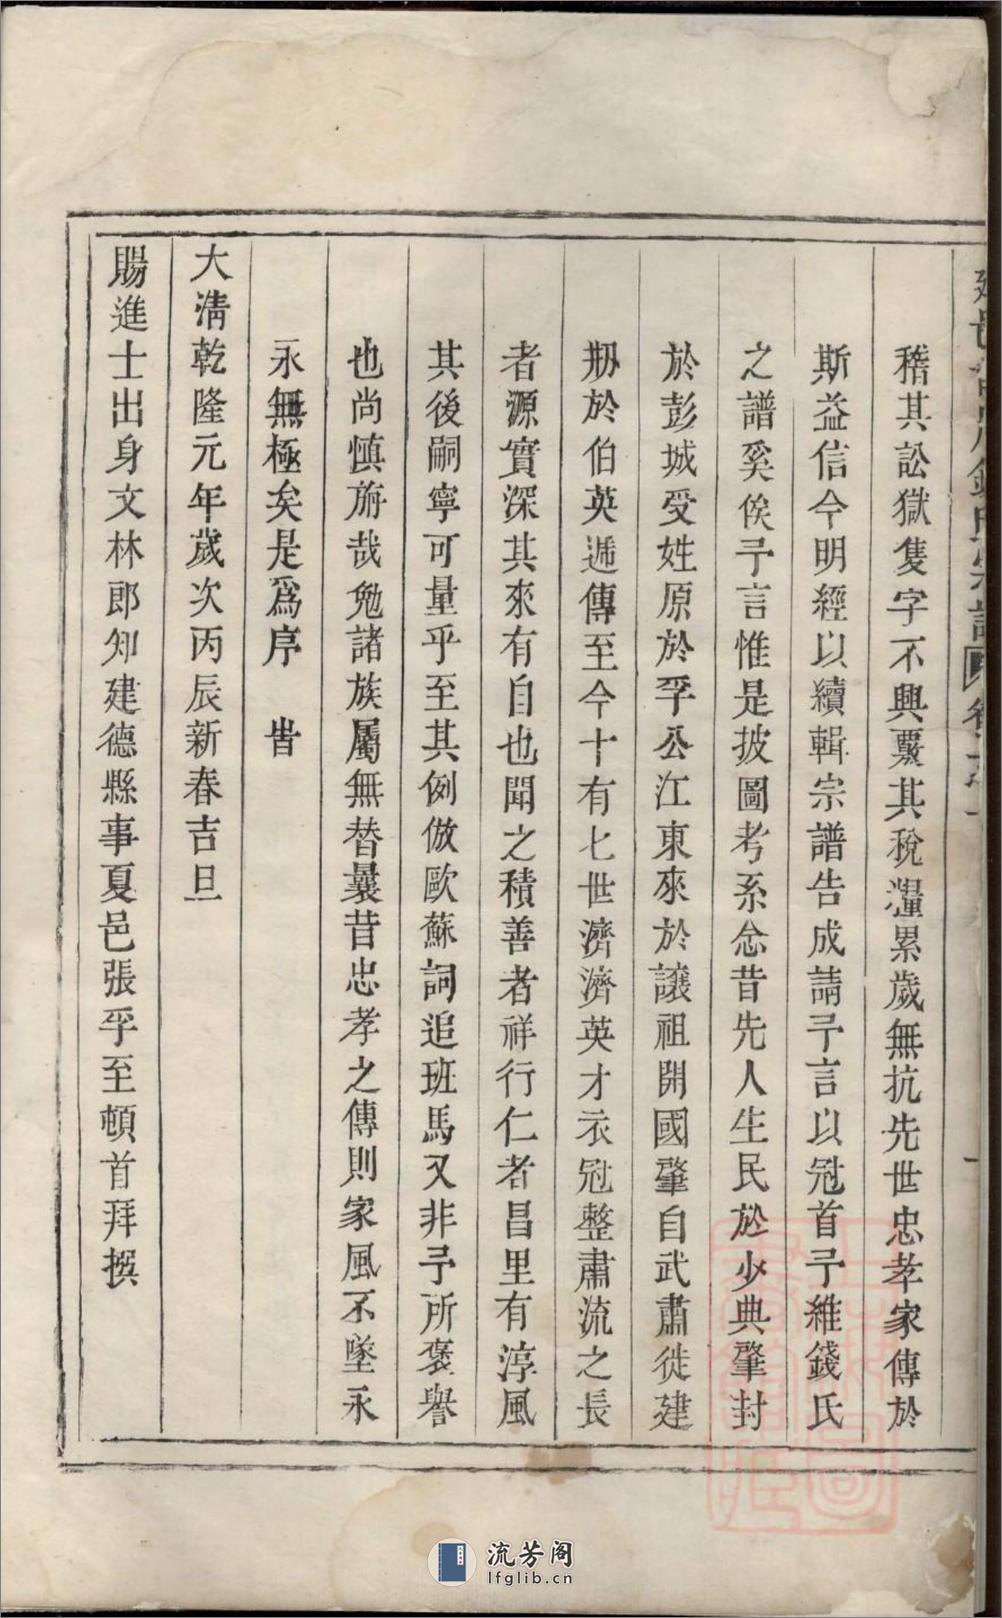 稽其訟獄隻字不興覈其稅糧累歲無抗先世忠孝家傳於
斯益信今明經以續輯宗譜告成請予言以冠首予維錢氏
之譜奚俟予言惟是披圖考系念昔先人生民於少典肇封
於彭城受姓原於孚公江東來於讓祖開國肇自武肅徙建
刱於伯英遞傳至今十有七世濟濟英才衣冠整肅流之長
者源實深其來有自也聞之積善者祥行仁者昌里有淳風
其後嗣寧可量乎至其例倣歐蘇詞追班馬又非予所褒譽
也尚慎旃哉勉諸族屬無替曩昔忠孝之傳則家風不墜永
永無極矣是爲序 旹
大清乾隆元年歲次丙辰新春吉旦
賜進士出身文林郎知建德縣事夏邑張孚至頓首拜撰
流芳阁
lfglib.cn